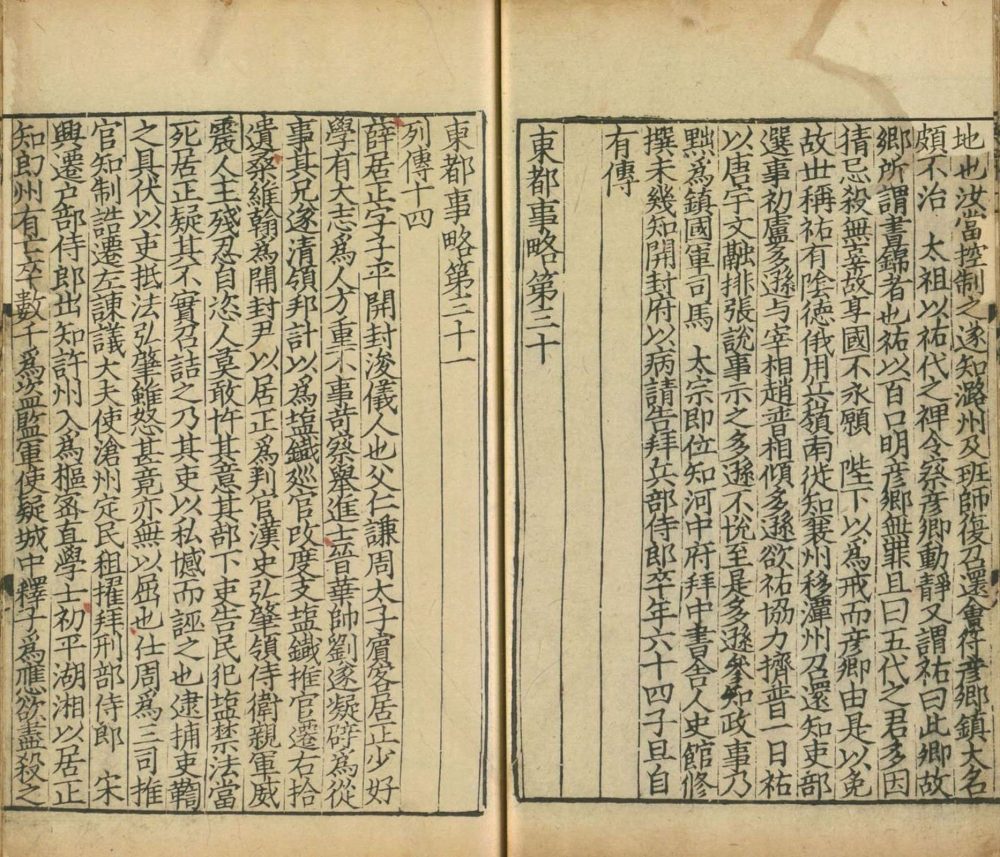 地也汝當控制之遂知潞州及班師復召還會符彥卿鎮大名
頗不治　太祖以祐代之禆令察彥卿動靜又謂祐曰此卿故
鄉所謂晝錦者也祐以百口明彥卿無罪且曰五代之君多因
猜忌殺無辜故享國不永願　陛下以爲戒而彥卿由是以免
故丗稱祐有隂德俄用兵嶺南徙知襄州移潭州召還知吏部
選事初盧多遜与宰相趙普相傾多遜欲祐協力擠普一日祐
以唐宇文融排張說事示之多遜不恱至是多遜參知政事乃
黜爲鎮國軍司馬　太宗即位知河中府拜中書舎人史館修
撰未幾知開封府以病請告拜兵部侍郎卒年六十四子旦自
有傳
東都事略第三十
東都事略第三十一
列傳十四
薛居正字子平開封浚儀人也父仁謙周太子賔客居正少好
學有大志爲人方重不事苛察舉進士晉華帥劉遂凝辟爲從
事其兄遂清領邦計以爲塩鐵廵官改度支塩鐵推官遷右拾
遺桑維翰爲開封尹以居正爲判官漢史弘肇領侍衛親軍威
震人主殘忍自恣人莫敢忤其意其部下吏告民犯塩禁法當
死居正疑其不實召詰之乃其吏以私憾而誣之也逮捕吏鞫
之具伏以吏抵法弘肇雖怒甚竟亦無以屈也仕周爲三司推
官知制誥遷左諫議大夫使滄州定民租擢拜刑部侍郎　宋
興遷户部侍郎出知許州入爲樞宻直學士初平湖湘以居正
知朗州有亡卒數千爲盗監軍使疑城中釋子爲應欲盡殺之